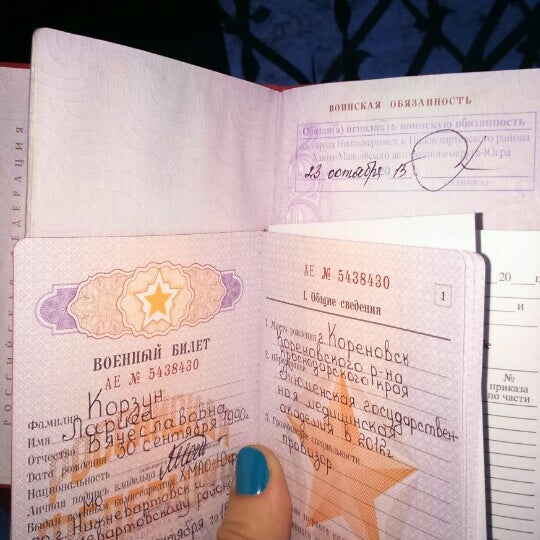 РОССИЙСКАЯ ФЕДЕРАЦИЯ
ВОИНСКАЯ ОБЯЗАННОСТЬ
Обязан(а) исполнять воинскую обязанность
города Нижневартовск и Нижневартовского района
Ханты-Мансийского автономного округа-Югра
23 октября 15
ВОЕННЫЙ БИЛЕТ
АЕ № 5438430
Фамилия Корзун
Имя Лариса
Отчество Вячеславовна
Дата рождения 30 сентября 1990г.
Национальность
Личная подпись владельца
Выдан военным комиссариатом ХМАО-Югры
по г. Нижневартовск и
Нижневартовскому району
АЕ № 5438430
1
I. Общие сведения
1. Место рождения г. Кореновск
Кореновского р-на
Краснодарского края
2. Образование Тюменская государствен-
ная медицинская
академия в 2012г.
3. Гражданские специальности
провизор
20
и
№
приказа
по части